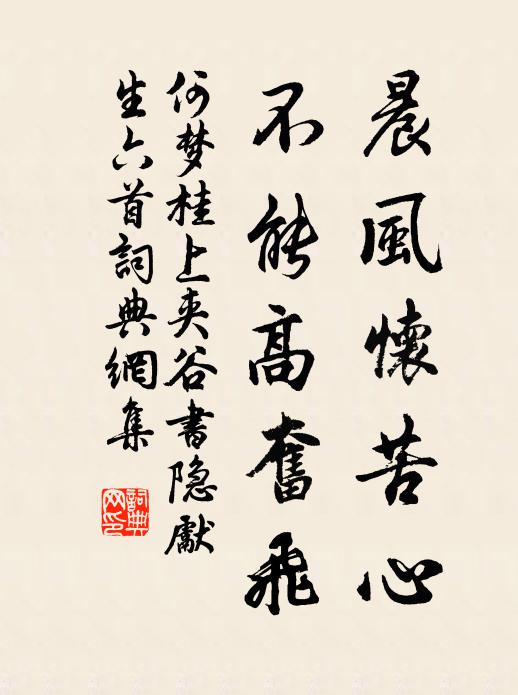 晨風懷苦心
不能高奮飛
何梦桂上夾谷書隐獻
生六首詞典網集
詞典网印